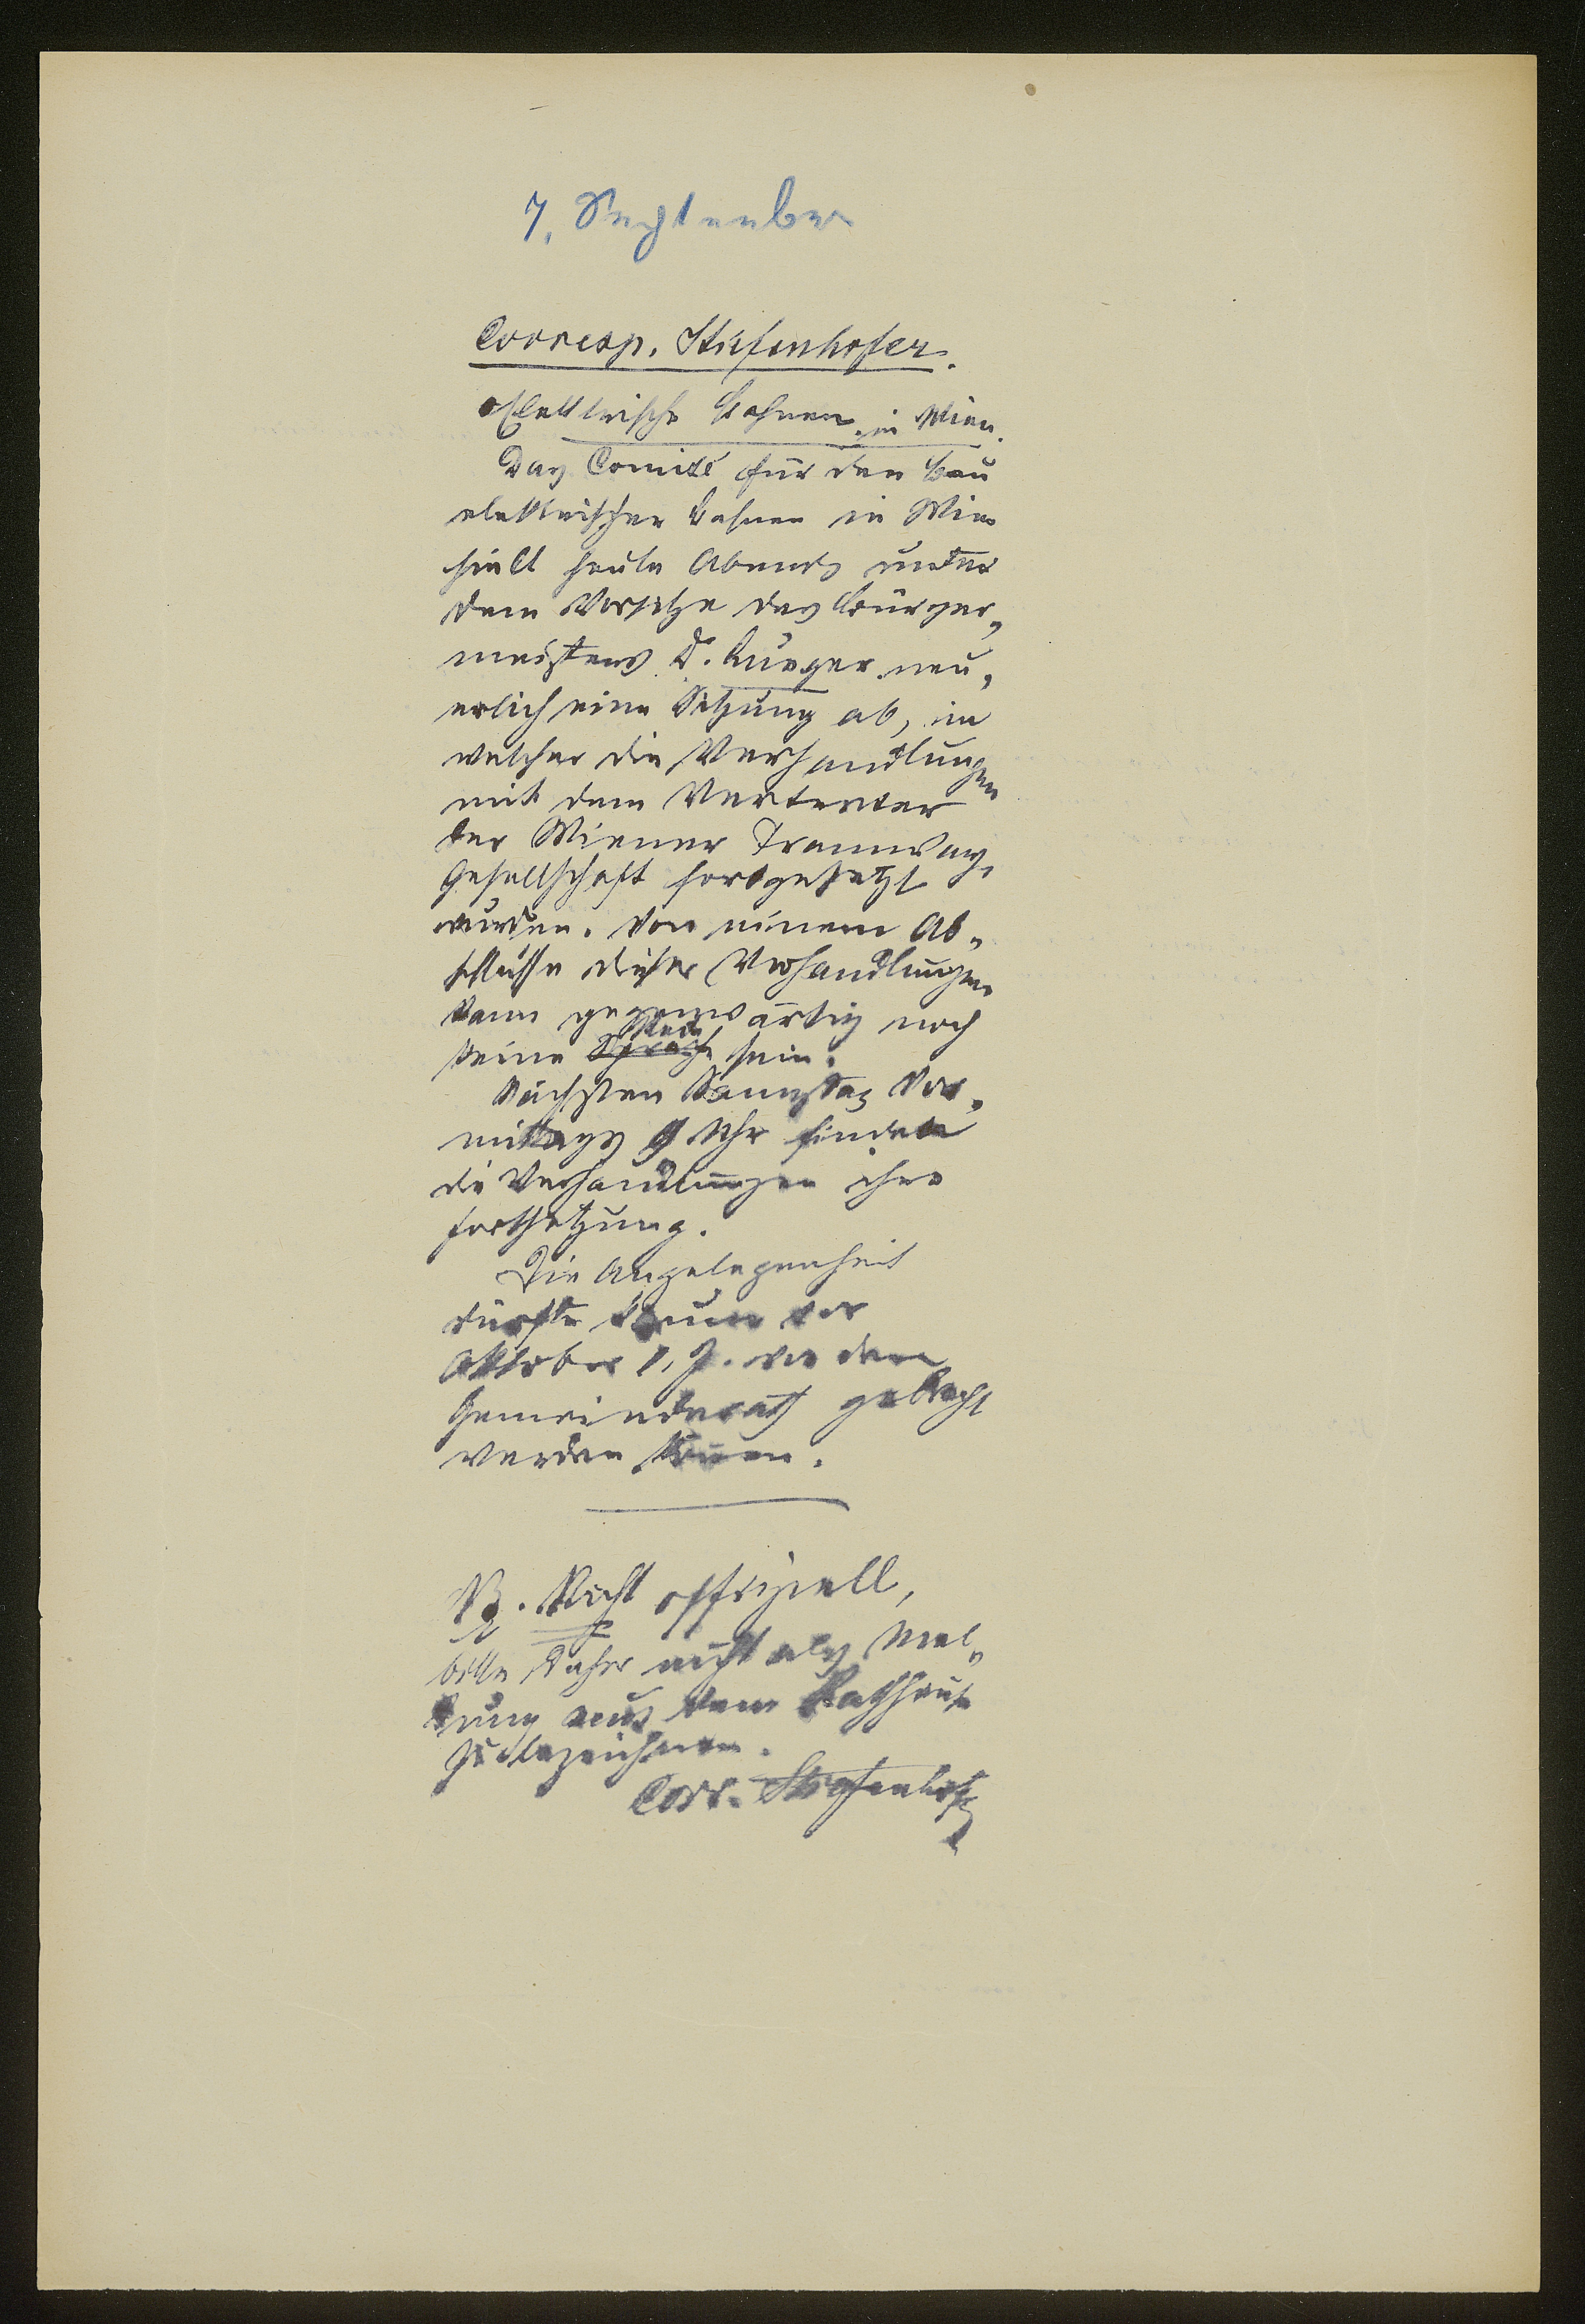 7. September
Corresp. Stiefenhofer.
Elektrische Bahnen in Wien.
Das Comité für den Bau
elektrischer Bahnen in Wien
hielt heute Abends unter
dem Vorsitze des Bürger-
meisters Dr. Lueger neu-
erlich eine Sitzung ab, in
welcher die Verhandlungen
mit dem Vertreter
der Wiener Tramway-
Gesellschaft fortgesetzt
wurden. Von einem Ab-
schlusse dieser Verhandlungen
kann gegenwärtig noch
keine Sprache Rede sein.
Nächsten Samstag Vor-
mittags 9 Uhr finden
die Verhandlungen ihre
Fortsetzung.
Die Angelegenheit
dürfte kaum vor
Oktober l. J. vor den
Gemeinderath gebracht
werden können.
NB. Nicht offiziell,
bitte daher nicht als Mel-
dung aus dem Rathhause
zu bezeichnen.
Corr. Stiefenhofer